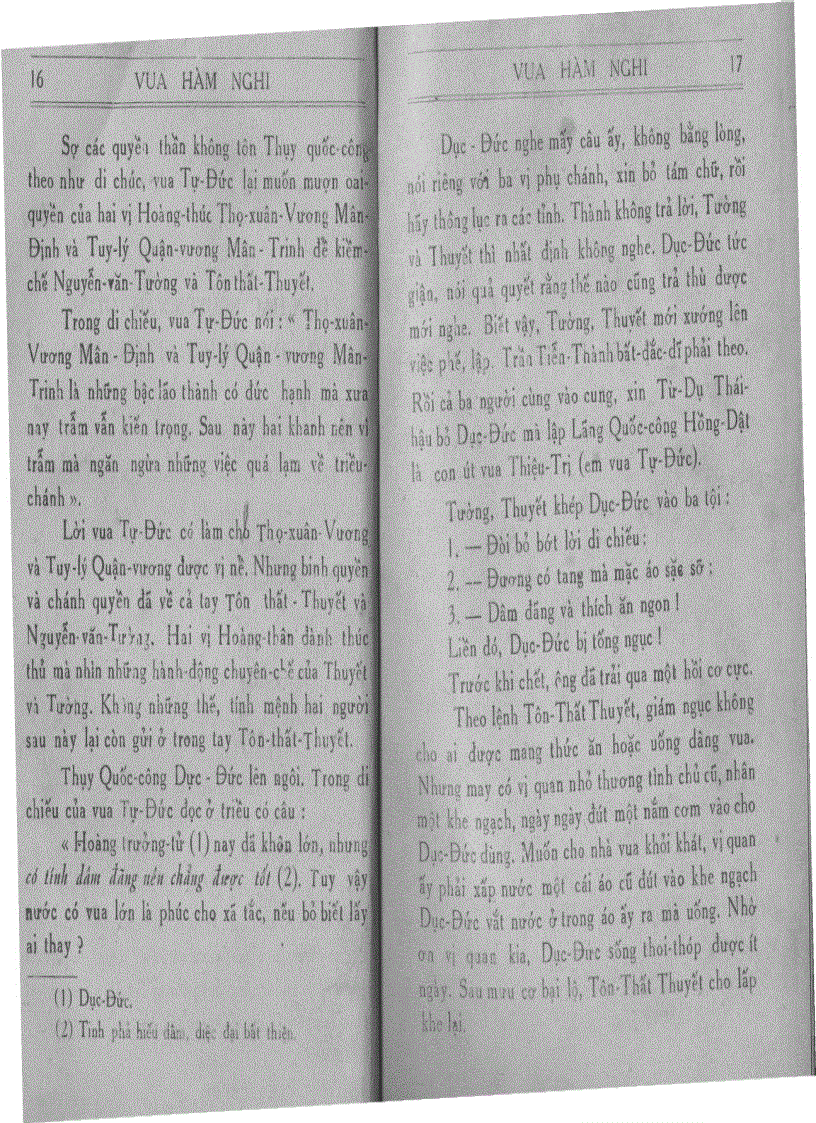 16 VUA HÀM NGHI
Sợ các quyền thần không tôn Thụy quốc-công
theo như di chúc, vua Tự-Đức lại muốn mượn oai-
quyền của hai vị Hoàng-thúc Thọ-xuân-Vương Mân-
Định và Tuy-lý Quận-vương Mân - Trinh để kiềm-
chế Nguyễn-văn-Tường và Tôn thất-Thuyết.
Trong di chiếu, vua Tự-Đức nói : « Thọ-xuân-
Vương Mân - Định và Tuy-lý Quận - vương Mân-
Trinh là những bậc lão thành có đức hạnh mà xưa
nay trẫm vẫn kiến trọng. Sau này hai khanh nên vì
trẫm mà ngăn ngừa những việc quá lạm về triều-
chánh ».
Lời vua Tự-Đức có làm cho Thọ-xuân-Vương
và Tuy-lý Quận-vương được vị nề. Nhưng binh quyền
và chánh quyền đã về cả tay Tôn thất - Thuyết và
Nguyễn-văn-Tường. Hai vị Hoàng-thân đành thúc
thủ mà nhìn những hành-động chuyên-chế của Thuyết
và Tường. Không những thế, tính mệnh hai người
sau này lại còn gửi ở trong tay Tôn-thất-Thuyết.
Thụy Quốc-công Dực - Đức lên ngôi. Trong di
chiếu của vua Tự-Đức đọc ở triều có câu :
« Hoàng trưởng-tử (1) nay đã khôn lớn, nhưng
có tính dâm đãng nên chẳng được tốt (2). Tuy vậy
nước có vua lớn là phúc cho xã tắc, nếu bỏ biết lấy
ai thay ?
(1) Dục-Đức.
(2) Tính phả hiếu dâm, diệc đại bất thiện.
VUA HÀM NGHI 17
Dục - Đức nghe mấy câu ấy, không bằng lòng,
nói riêng với ba vị phụ chánh, xin bỏ tám chữ, rồi
hãy thông lục ra các tỉnh. Thành không trả lời, Tường
và Thuyết thì nhất định không nghe. Dục-Đức tức
giận, nói quả quyết rằng thế nào cũng trả thù được
mới nghe. Biết vậy, Tường, Thuyết mới xướng lên
việc phế, lập. Trần Tiễn-Thành bất-đắc-dĩ phải theo.
Rồi cả ba người cùng vào cung, xin Từ-Dụ Thái-
hậu bỏ Dục-Đức mà lập Lãng Quốc-công Hồng-Dật
là con út vua Thiệu-Trị (em vua Tự-Đức).
Tường, Thuyết khép Dục-Đức vào ba tội :
1. — Đòi bỏ bớt lời di chiếu ;
2. — Đương có tang mà mặc áo sặc sỡ :
3. — Dâm đãng và thích ăn ngon !
Liền đó, Dục-Đức bị tống ngục !
Trước khi chết, ông đã trải qua một hồi cơ cực.
Theo lệnh Tôn-Thất Thuyết, giám ngục không
cho ai được mang thức ăn hoặc uống dâng vua.
Nhưng may có vị quan nhỏ thương tình chủ cũ, nhân
một khe ngạch, ngày ngày đút một nắm cơm vào cho
Dục-Đức dùng. Muốn cho nhà vua khỏi khát, vị quan
ấy phải xấp nước một cái áo cũ đút vào khe ngạch
Dục-Đức vắt nước ở trong áo ấy ra mà uống. Nhờ
ơn vị quan kia, Dục-Đức sống thoi-thóp được ít
ngày. Sau mưu cơ bại lộ, Tôn-Thất Thuyết cho lấp
khe lại.